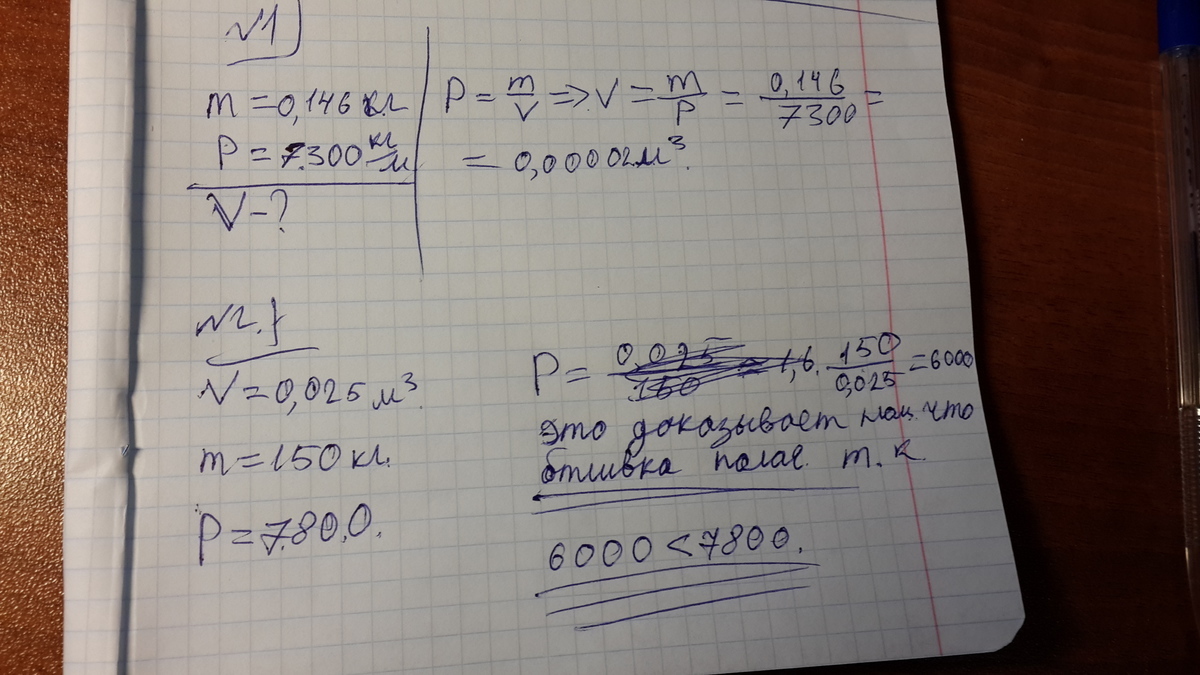 №1
m = 0,146 кг
P = 7300 кг/м
V - ?
P = m/V => V = m/P = 0,146/7300 =
= 0,00002 м³.
№2.
V = 0,025 м³.
m = 150 кг.
P = 7800.
P = 0,025/150 = 1,6. 150/0,025 = 6000
это доказывает нам что
отливка полая. т. к.
6000 < 7800.